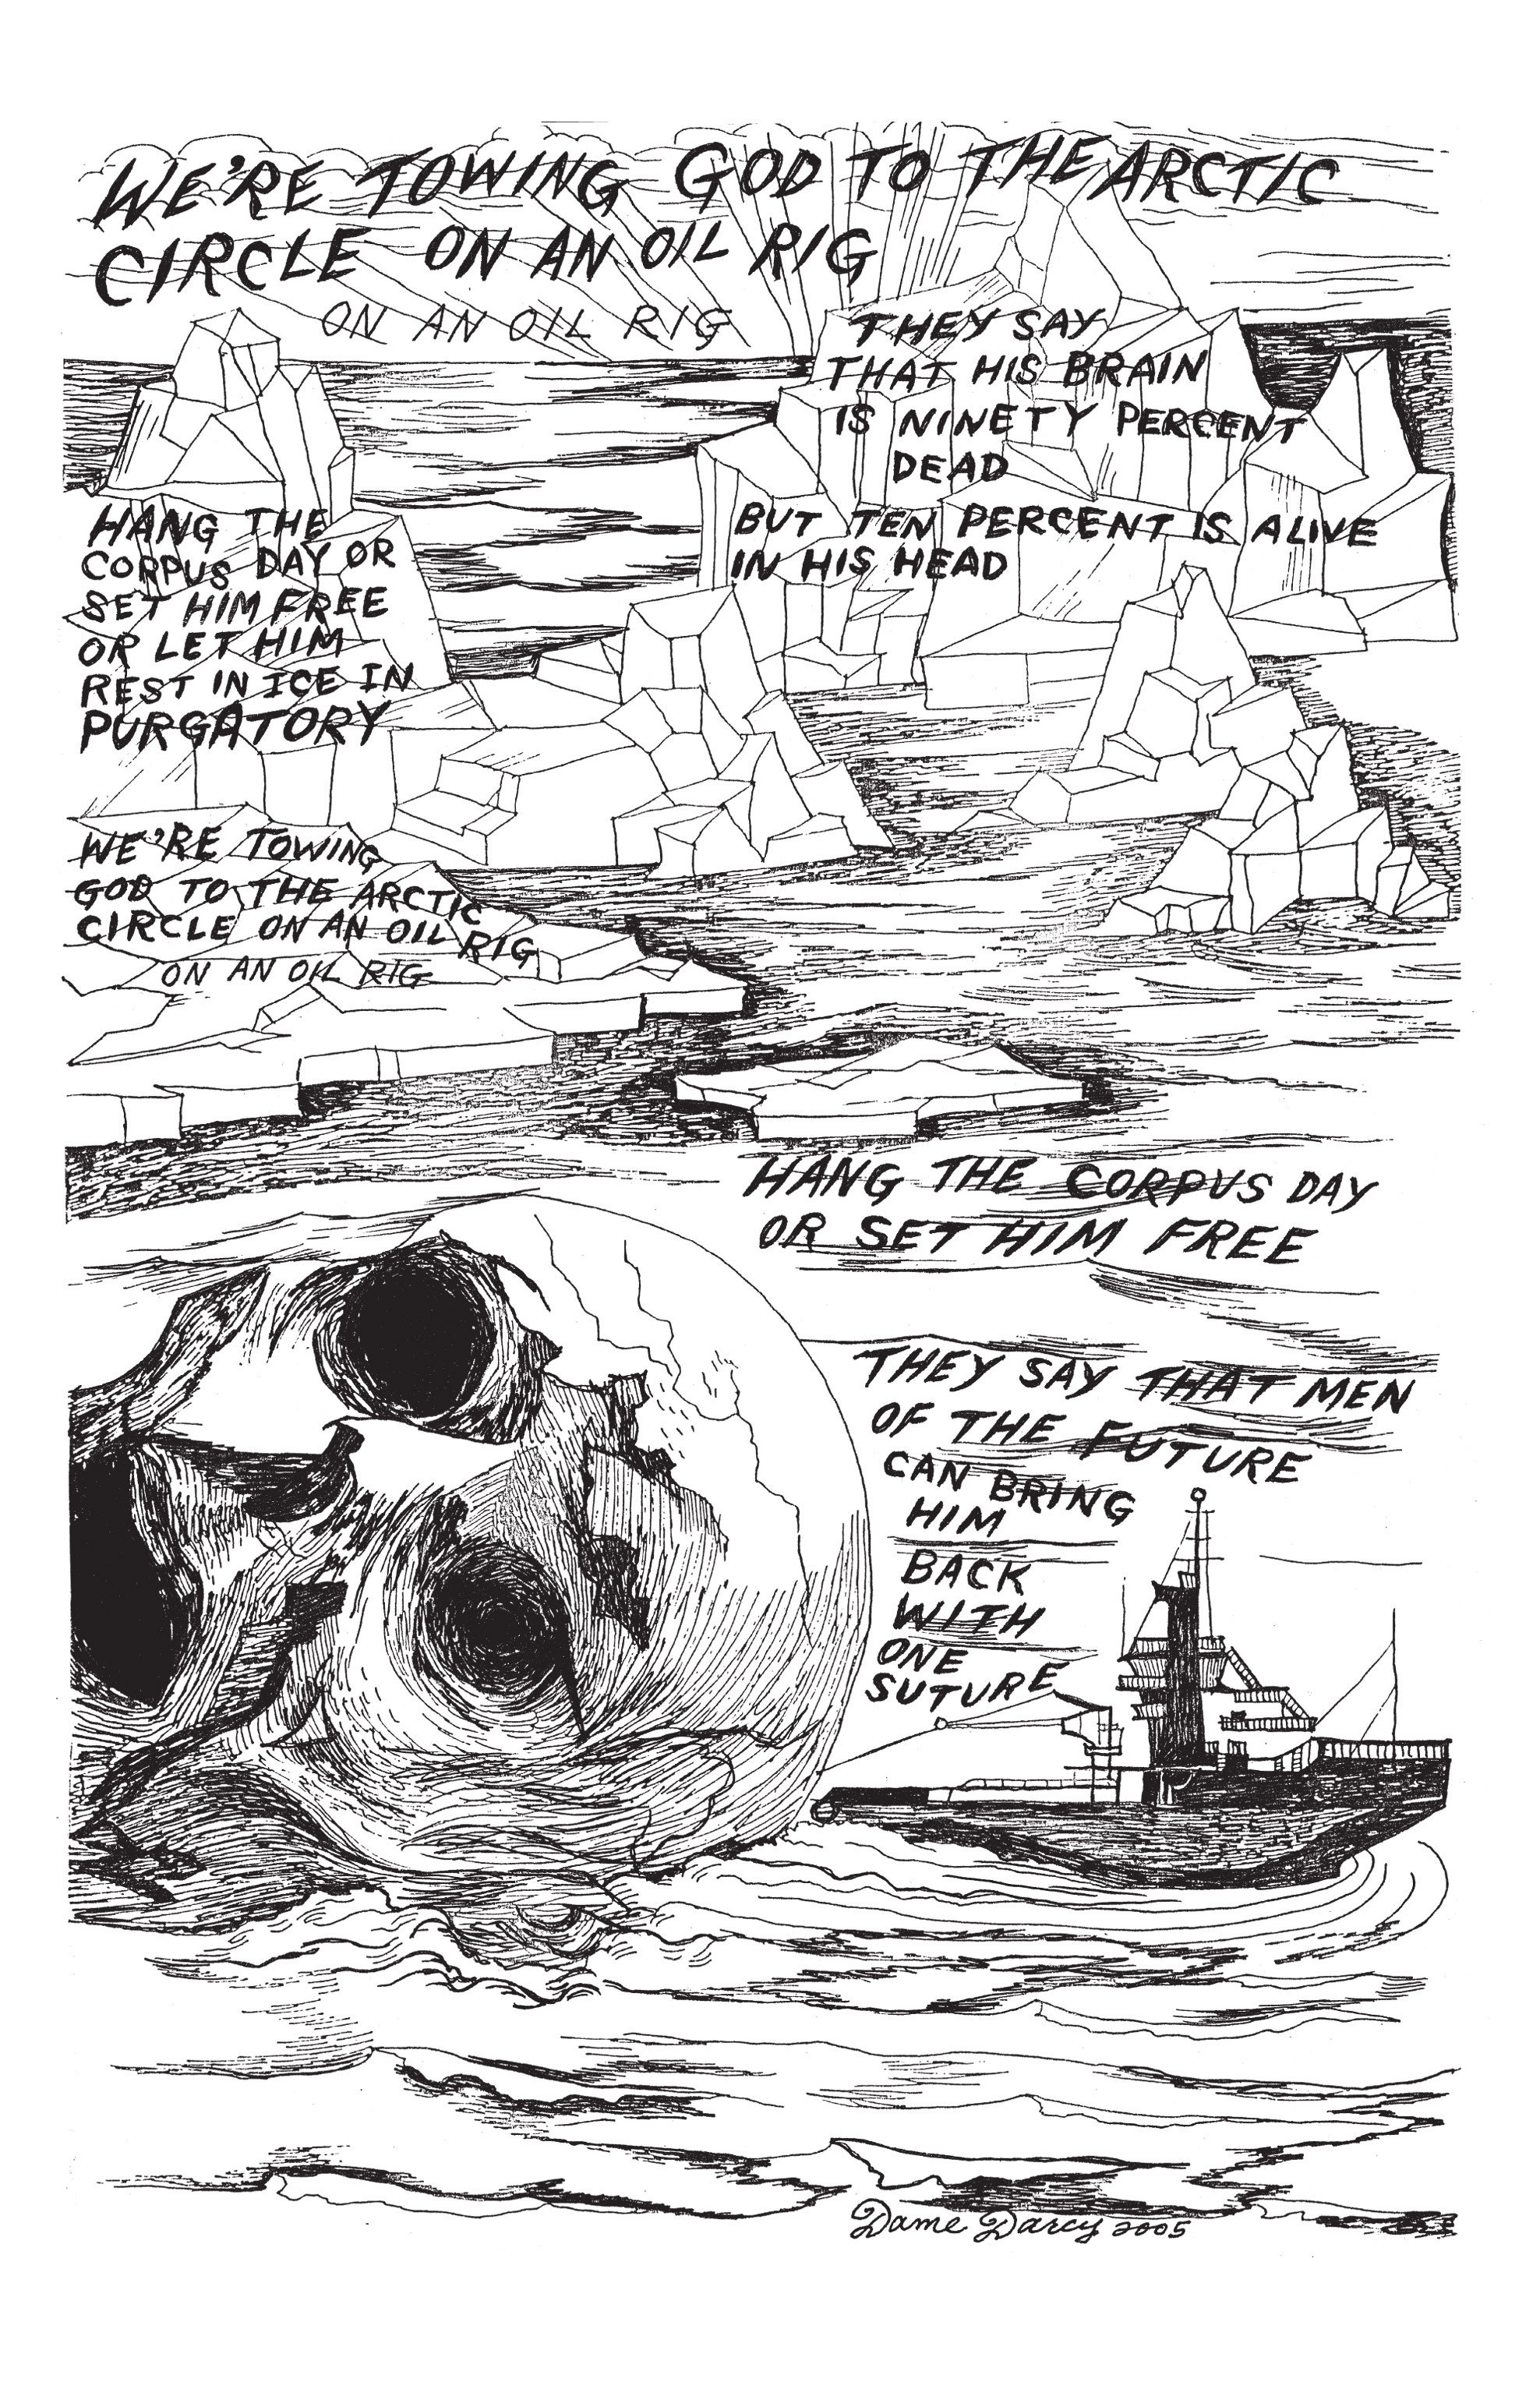 WE'RE TOWING GOD TO THE ARCTIC
CIRCLE ON AN OIL RIG
ON AN OIL RIG
THEY SAY
THAT HIS BRAIN
IS NINETY PERCENT
DEAD
BUT TEN PERCENT IS ALIVE
IN HIS HEAD
HANG THE
CORPUS DAY OR
SET HIM FREE
OR LET HIM
REST IN ICE IN
PURGATORY
WE'RE TOWING
GOD TO THE ARCTIC
CIRCLE ON AN OIL RIG
ON AN OIL RIG
HANG THE CORPUS DAY
OR SET HIM FREE
THEY SAY THAT MEN
OF THE FUTURE
CAN BRING
HIM
BACK
WITH
ONE
SUTURE
Dame Darcy 2005